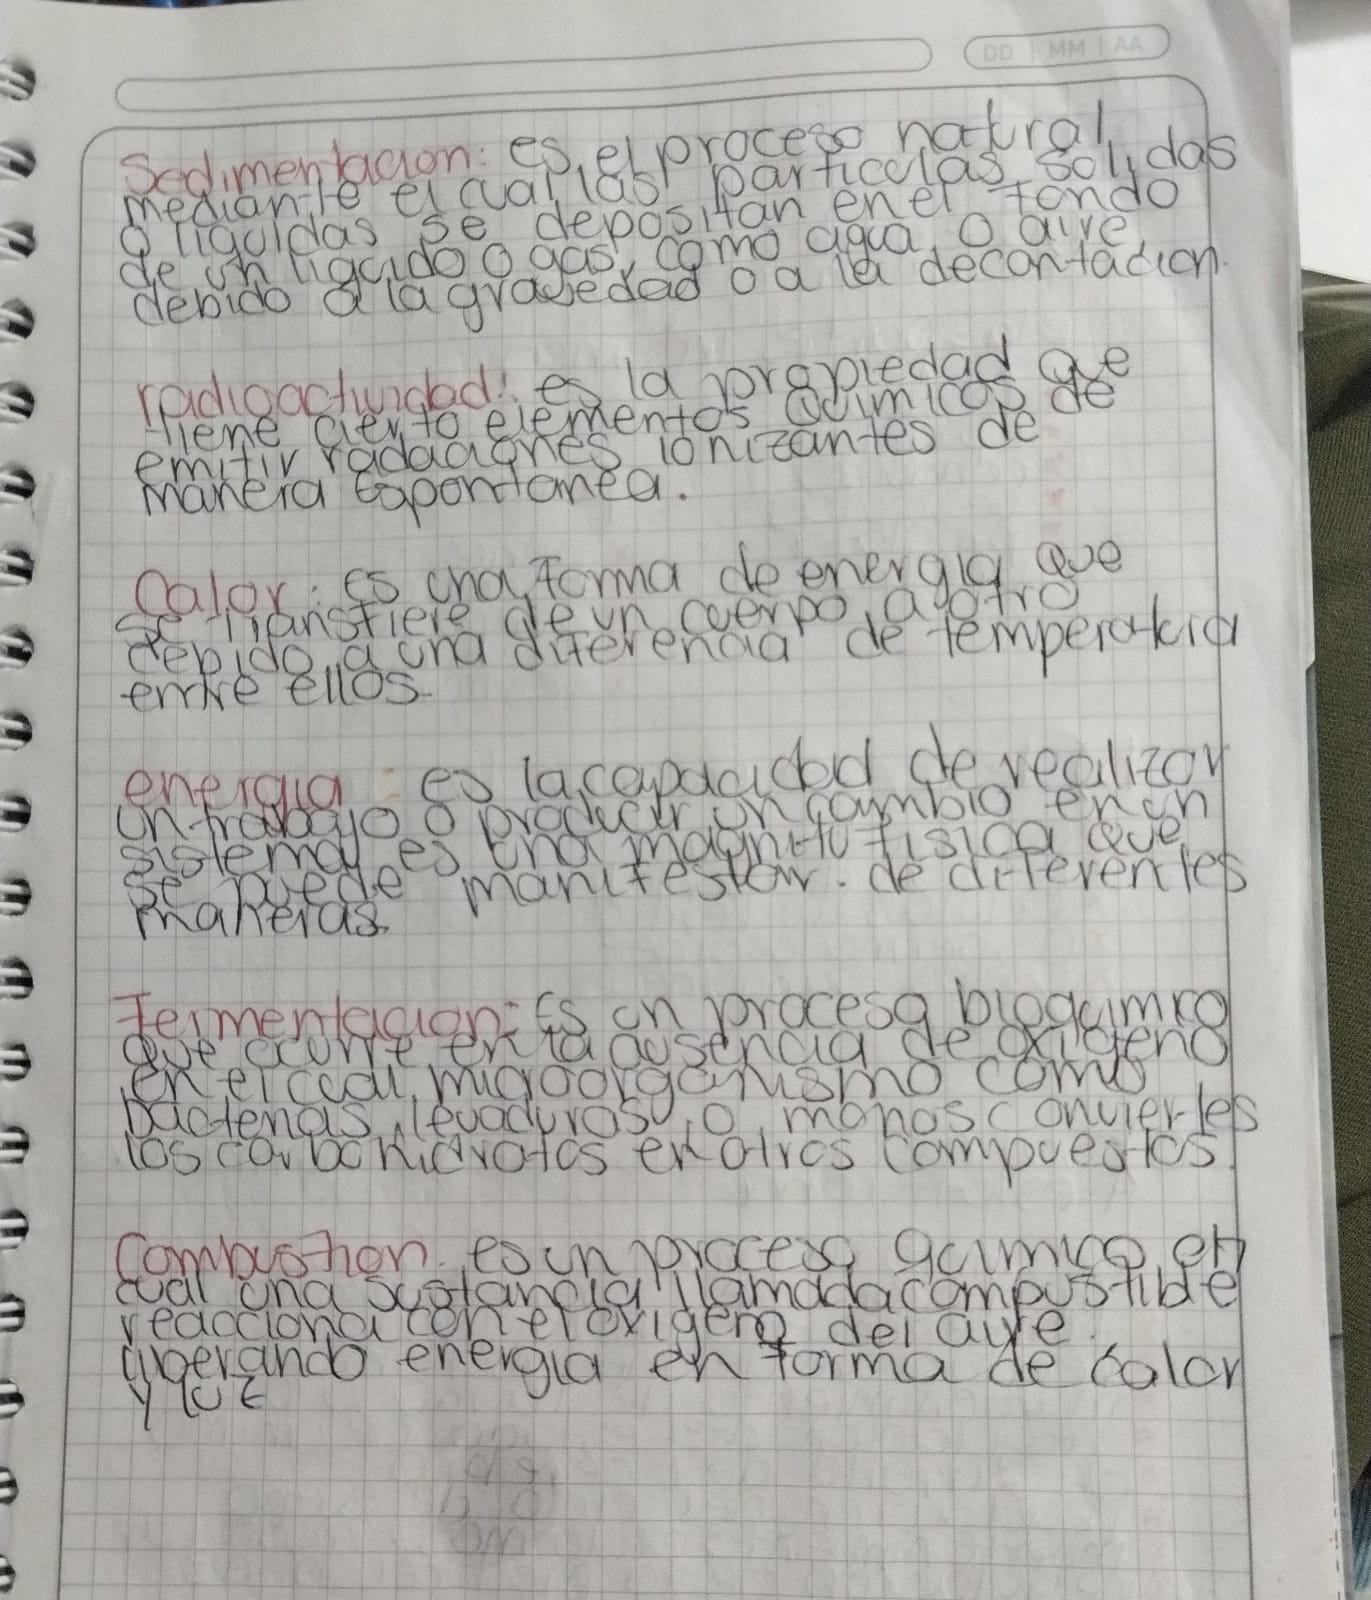 DD | MM | AA
Sedimentacion: es el proceso natural
mediante el cual las particulas solidas
o liquidas se depositan en el fondo
de un liquido o gas, como agua o aire
debido a la gravedad o a la decontacion.
radioactividad: es la propiedad que
tiene cierto elementos quimicos de
emitir radaciones ionizantes de
manera espontanea.
Calor: es una forma de energia que
se transfiere de un cuerpo a otro
debido a una diferencia de temperatura
entre ellos.
energia: es la capacidad de realizar
un trabajo o producir un cambio en un
sistema, es una magnitu fisica que
se puede manifestar. de diferentes
maneras.
Fermentacion: Es un proceso bioquimico
que ocurre en la ausencia de oxigeno
en el cual, microorganismo como
bacterias, levaduras, o monos convierles
los carbonidratos en otros compuestos.
Combustion. es un proceso quimico en
cual una sustancia llamada compustible
reacciona con el oxigeno del aire
liberando energia en forma de calor
y luz